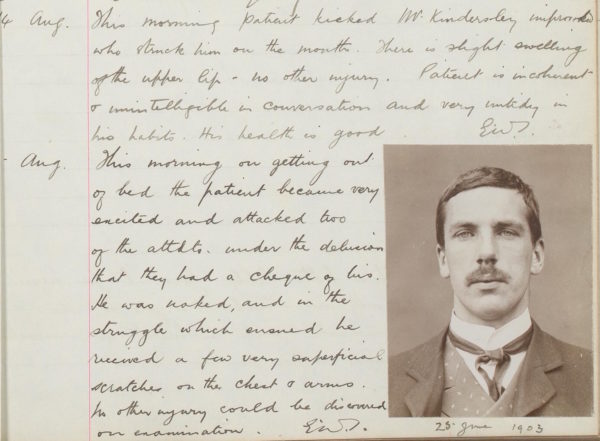 4 Aug. This morning patient kicked Mr. Kindersley
who struck him on the mouth. There is slight swelling
of the upper lip - no other injury. Patient is incoherent
& unintelligible in conversation and very untidy in
his habits. His health is good.
- Aug. This morning on getting out
of bed the patient became very
excited and attacked two
of the attdts. under the delusion
that they had a cheque of his.
He was naked, and in the
struggle which ensued he
received a few very superficial
scratches on the chest & arms.
No other injury could be discovered
on examination.
25 June 1903